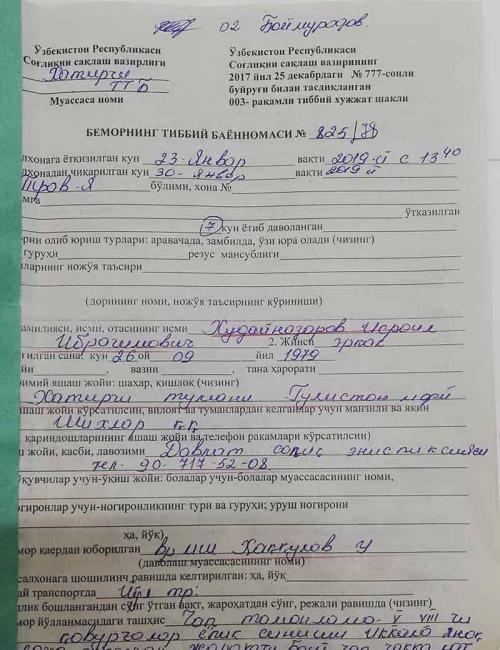 02 Баймуродов.
Ўзбекистон Республикаси
Соғлиқни сақлаш вазирлиги
Хатирчи
ТТБ
Муассаса номи
Ўзбекистон Республикаси
Соғлиқни сақлаш вазирининг
2017 йил 25 декабрдаги № 777-сонли
буйруғи билан тасдиқланган
003- рақамли тиббий хужжат шакли
БЕМОРНИНГ ТИББИЙ БАЁННОМАСИ № 825/78
лхонага ётқизилган кун 23-Январ вақти 2019-й с 13 40
лхонадан чиқарилган кун 30-Январ вақти 2019 й
бўлими, хона №
мга
ўтказилган
7 кун ётиб даволанган
рни олиб юриш турлари: аравачада, замбилда, ўзи юра олади (чизинг)
гуруҳи резус мансублиги
ларнинг ножўя таъсири
(дорининг номи, ножўя таъсирнинг кўриниши)
амилияси, исми, отасининг исми Худайназаров Исроил
Иброгимович 2. Жинси эркак
ғилган сана: кун 26 ой 09 йил 1979
йи , вазни , тана ҳарорати
римий яшаш жойи: шаҳар, қишлоқ (чизинг)
Хатирчи тумани Гулистон мфй
шаш жойи кўрсатилсин, вилоят ва туманлардан келганлар учун манзили ва яқин
Шихлар қ.қ.
қариндошларининг яшаш жойи ва телефон рақамлари кўрсатилсин)
ш жойи, касби, лавозими Давлат солиқ
тел- 90-717-52-08.
ўқувчилар учун-ўқиш жойи: болалар учун-болалар муассасасининг номи,
огиронлар учун-ногиронликнинг тури ва гуруҳи; уруш ногирони
ҳа, йўқ)
мор қаердан юборилган Ҳаққулов У
(даволаш муассасасининг номи)
салхонага шошилинч равишда келтирилган: ҳа, йўқ
ай транспортда
ллик бошлангандан сўнг ўтган вақт, жароҳатдан сўнг, режали равишда (чизинг)
мор йўлланмасидаги ташҳис Чап томонлама V VIII чи
қовурғалар ёпиқ синиши